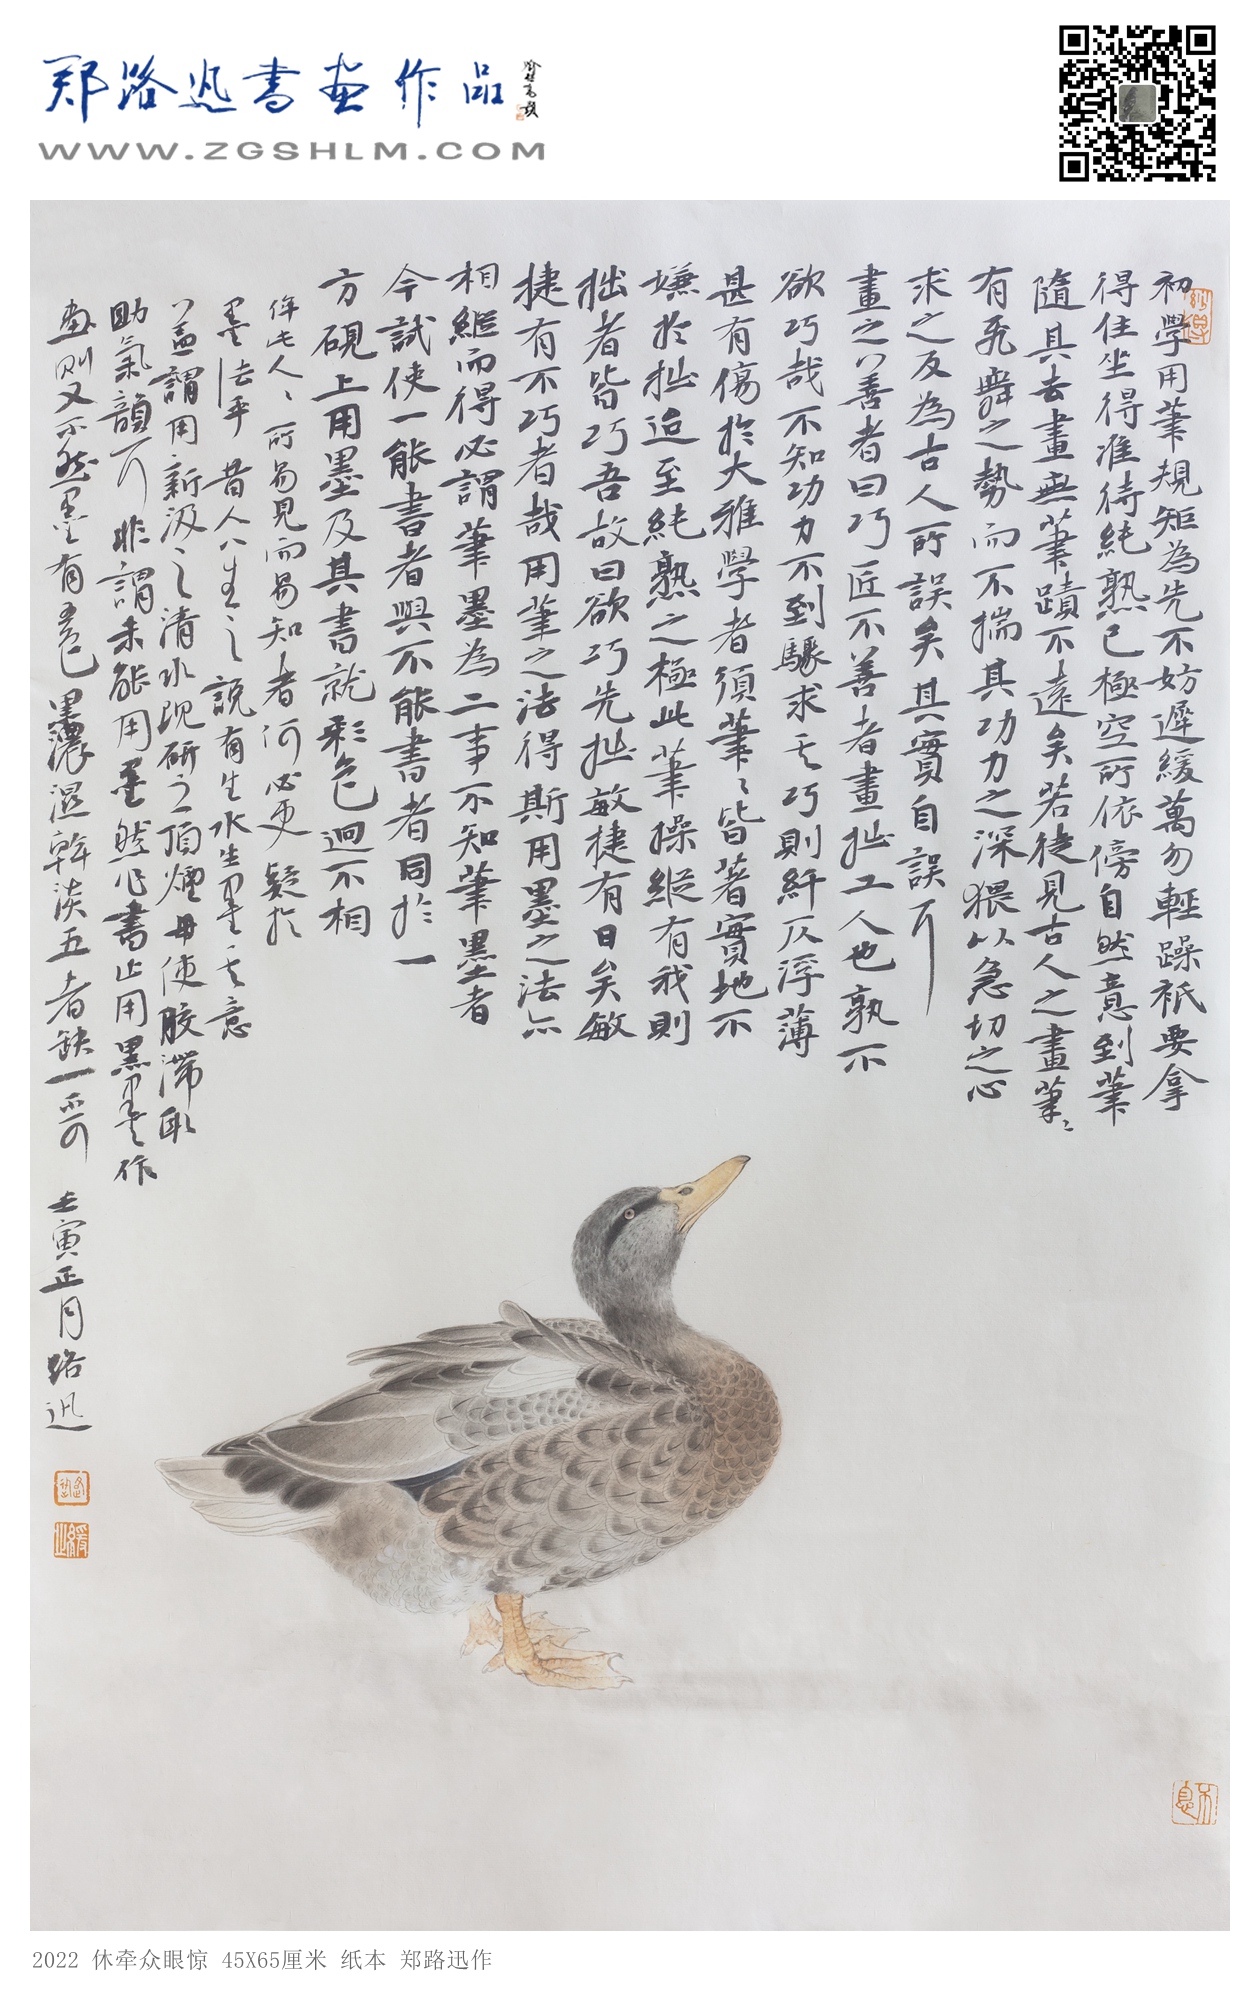 郑路迅書画作品
WWW.ZGSHLM.COM
初學用筆規矩為先不妨遲緩萬勿輕躁祇要拿
得住坐得准待純熟已極空所依傍自然意到筆
隨具去畫無筆蹟不遠矣若徒見古人之畫筆〻
有飛舞之勢而不揣其功力之深猥以急切之心
求之反為古人所誤矣其實自誤耳
畫之善者曰巧匠不善者畫拙工人也孰不
欲巧哉不知功力不到驟求其巧則纤仄浮薄
甚有傷於大雅學者須筆〻皆著實地不
嫌於拙迨至純熟之極此筆操縱有我則
拙者皆巧吾故曰欲巧先拙敏捷有日矣敏
捷有不巧者哉用筆之法得斯用墨之法亦
相繼而得必謂筆墨為二事不知筆墨者
今試使一能書者與不能書者同於一
方硯上用墨及其書就彩色迥不相
侔此人〻所易見而易知者何必更疑於
墨法乎昔人生之說有生水生墨其意
盖謂用新汲之清水現研之頂煙毋使膠滯取
助氣韻耳非謂未能用墨然作書止用黑墨其作
畫則又不然墨有五色墨濃濕幹淡五者缺一不可
壬寅正月路迅
2022 休牵众眼惊 45X65厘米 纸本 郑路迅作